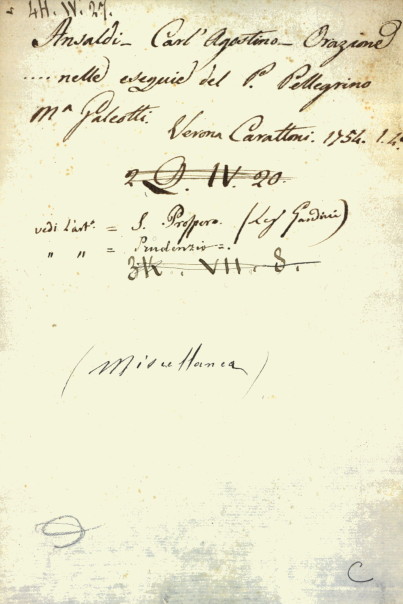 4H. IV. 27.
Ansaldi - Carl'Agostino - Orazione
.... nelle esequie del P. Pellegrino
Mª Galeotti.
Verona Carattoni. 1754. 1. 4°
2 Q. IV. 20.
vedi l'art.° = S. Prospero. (Leg Gandini)
" " = Prudenzio =.
3K. VII. 8.
(Miscellanea)
C